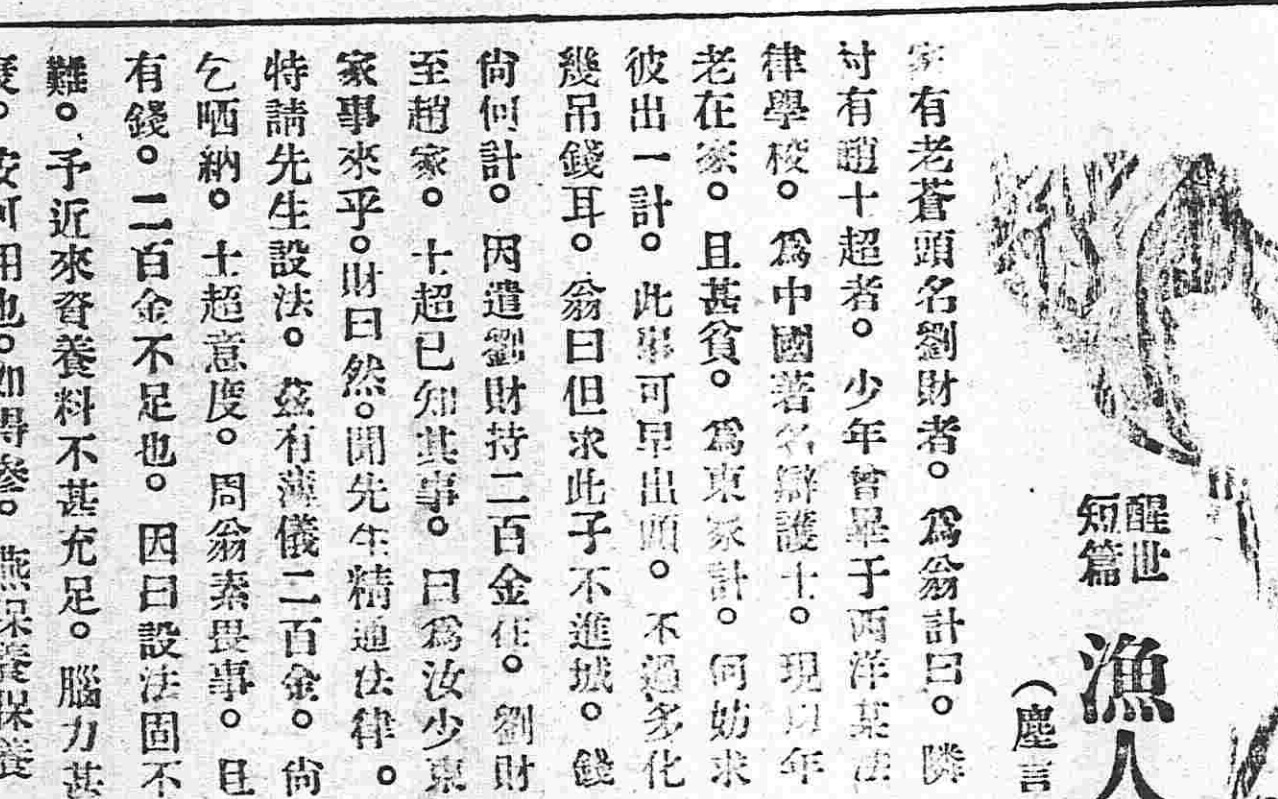 醒世
短篇
漁人
（塵言
家有老蒼頭名劉財者。爲翁計曰。隣
村有趙士超者。少年曾畢于西洋某法
律學校。爲中國著名辯護士。現因年
老在家。且甚貧。爲東家計。何妨求
彼出一計。此案可早出頭。不過多化
幾吊錢耳。翁曰但求此子不進城。錢
尙何計。因遣劉財持二百金往。劉財
至趙家。士超已知其事。曰爲汝少東
家事來乎。財曰然。聞先生精通法律。
特請先生設法。茲有薄儀二百金。尙
乞哂納。士超意度。周翁素畏事。且
有錢。二百金不足也。因曰設法固不
難。予近來資養料不甚充足。腦力甚
安可用也。如得參。燕保養保養